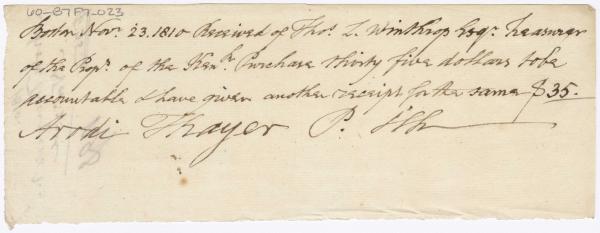 60-87F7-023
Boston Nov. 23. 1810 Received of Tho. L. Winthrop Esqr. Treasurer
of the Propr. of the Kenk. Purchase thirty five dollars to be
accountable & have given another receipt for the same $35.
Arodi Thayer